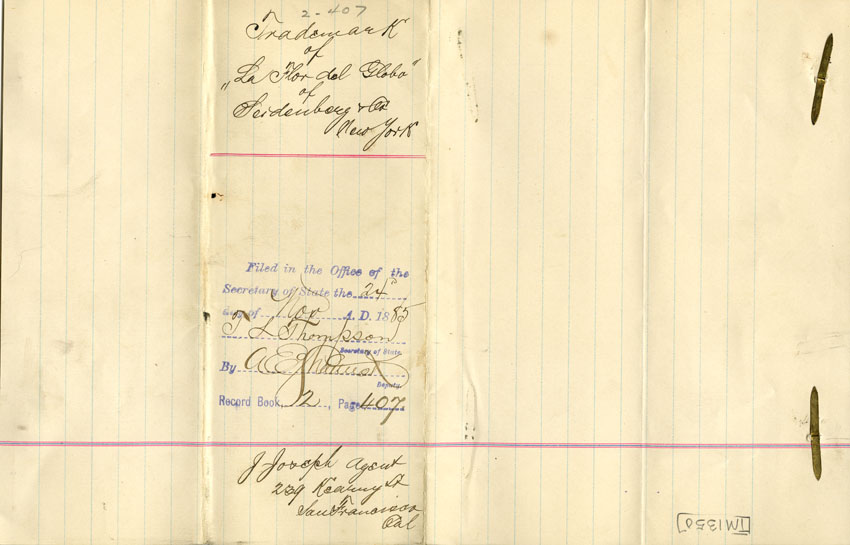 2-407
Trademark
of
„La Flor del Globo"
of
Seidenberg & Co
New York
Filed in the Office of the
Secretary of State the 24th
day of Nov A. D. 1885
T L Thompson
Secretary of State
By A E
Deputy.
Record Book 2, Page 407
J Joseph Agent
239 Kearny St
San Francisco
Cal
TM1350